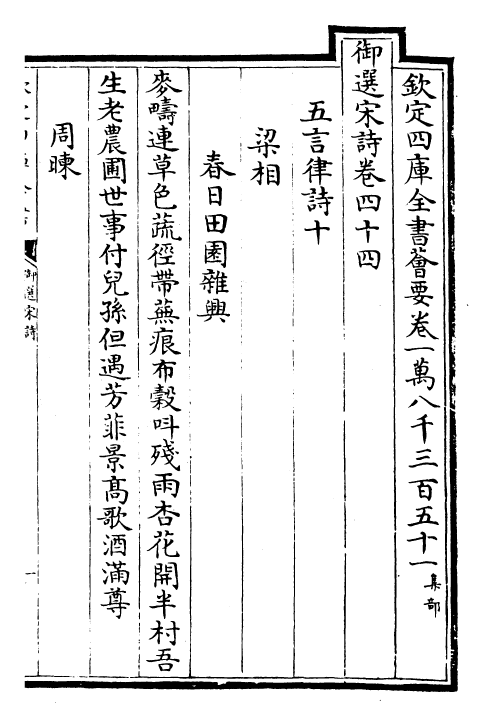 欽定四庫全書薈要卷一萬八千三百五十一 集部
御選宋詩卷四十四
五言律詩十
梁相
春日田園雜興
麥疇連草色蔬徑帶蕪痕布穀呌殘雨杏花開半村吾
生老農圃世事付兒孫但遇芳菲景高歌酒滿尊
周暕
御選宋詩
一